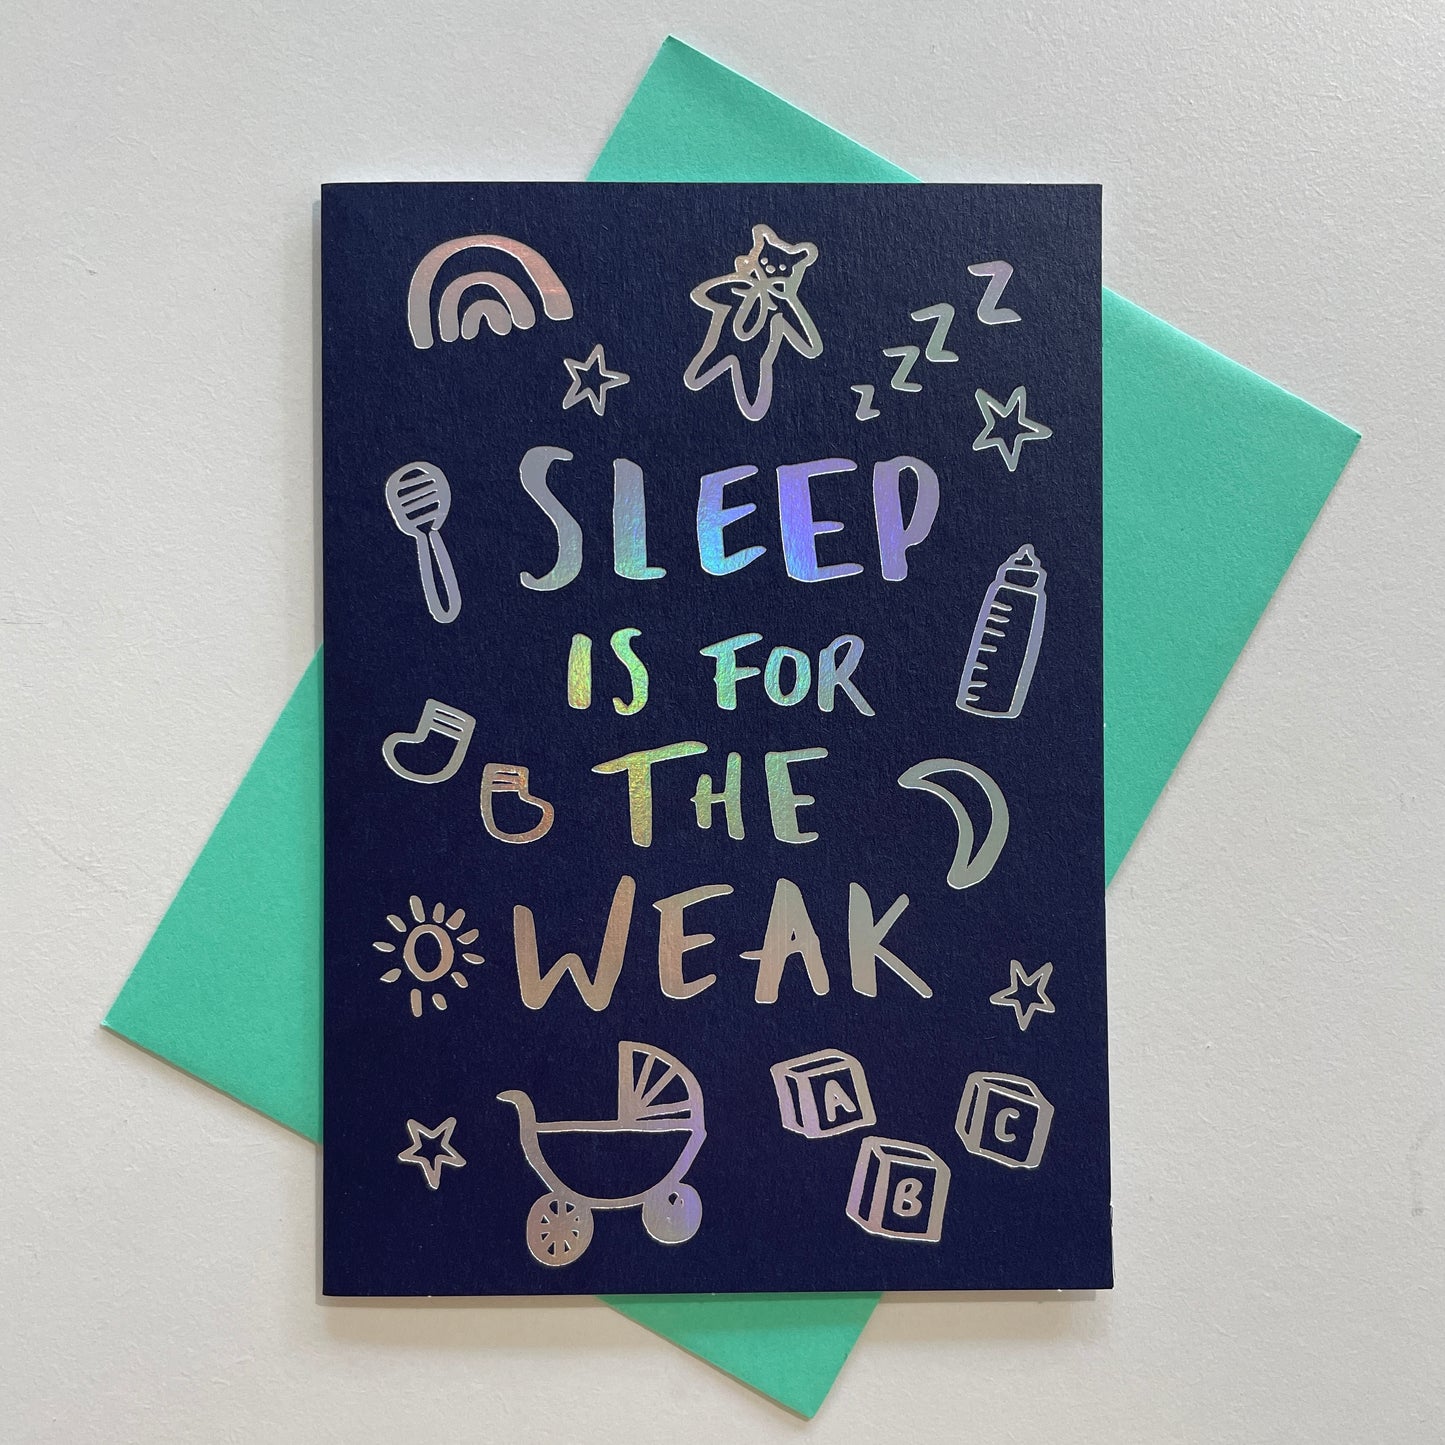 z z z z
SLEEP
IS FOR
THE
WEAK
A
C
B